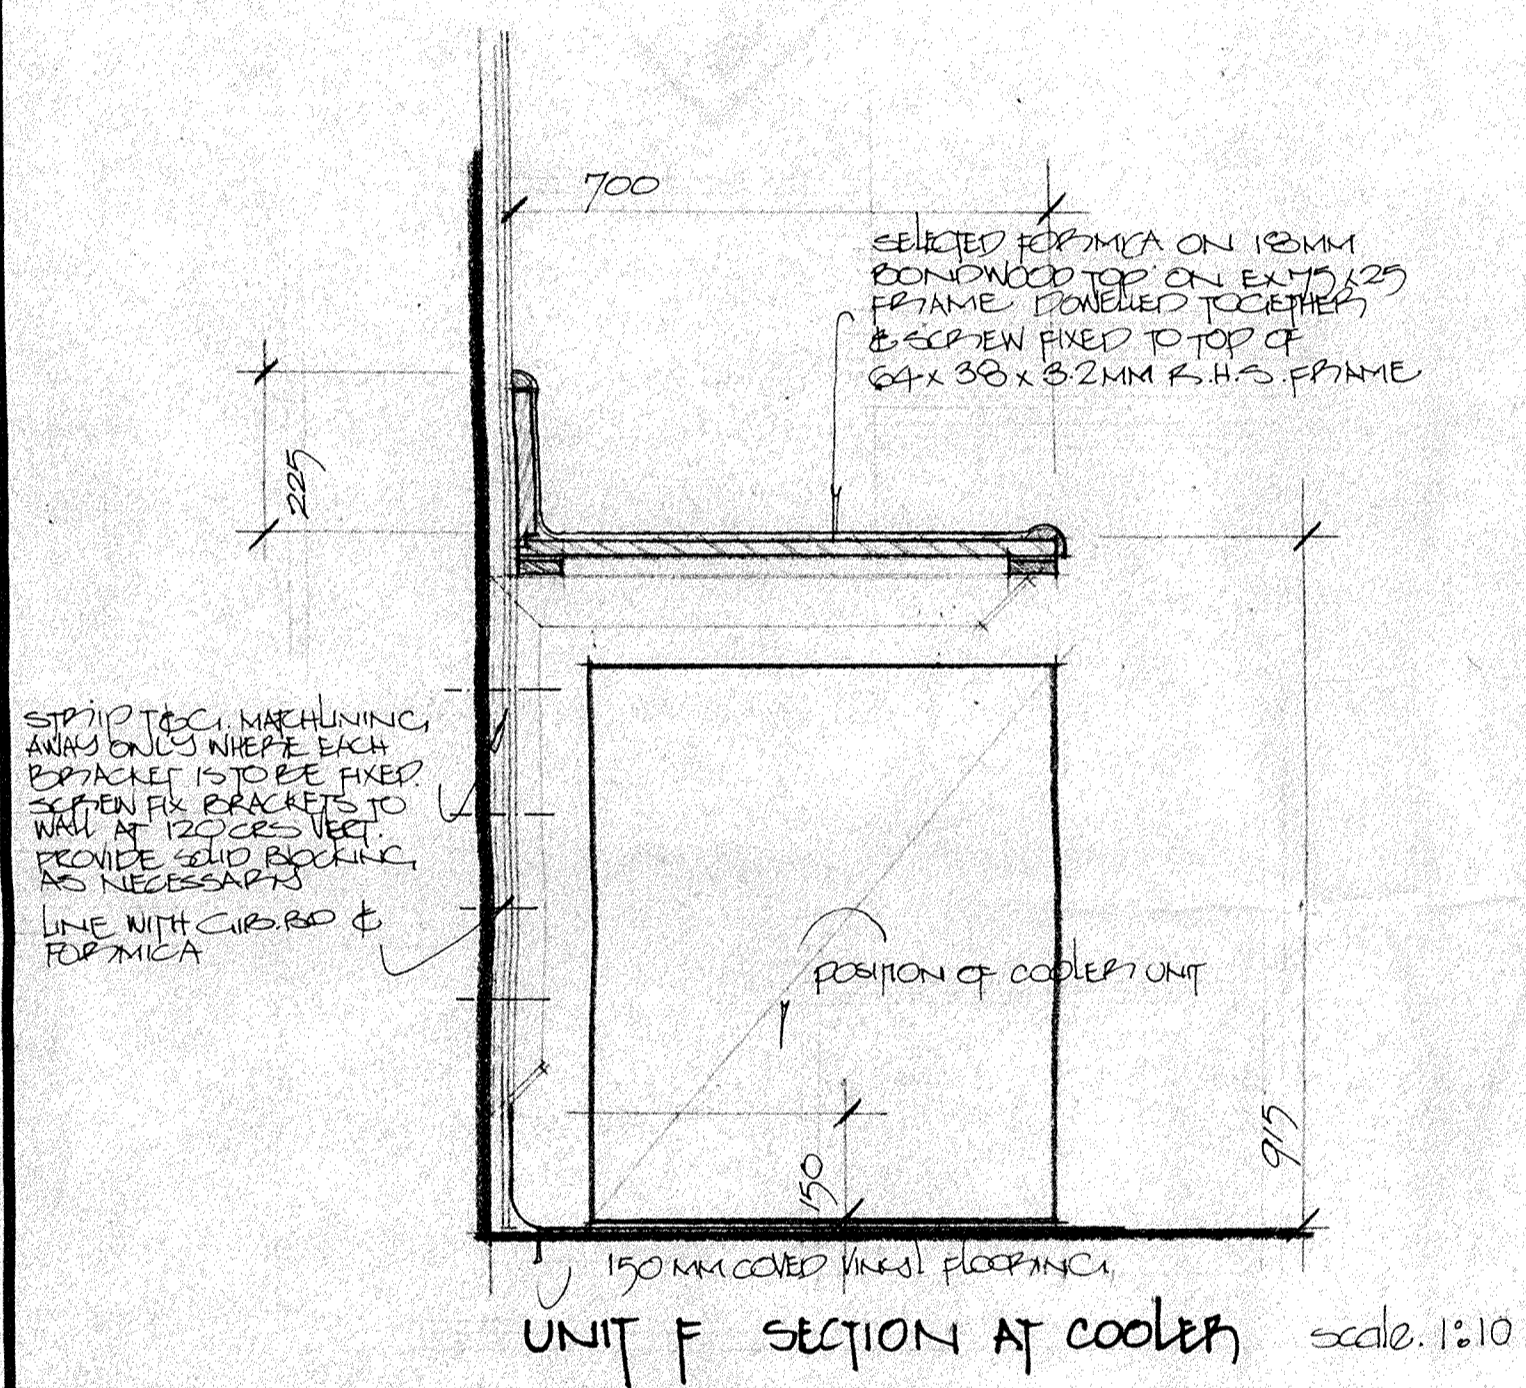 700
SELECTED FORMICA ON 18MM
BONDWOOD TOP ON EX 75 x 25
FRAME DOWELLED TOGETHER
& SCREW FIXED TO TOP OF
64 x 38 x 3.2MM R.H.S. FRAME
225
STRIP T&G. MATCHLINING
AWAY ONLY WHERE EACH
BRACKET IS TO BE FIXED.
SCREW FIX BRACKETS TO
WALL AT 120 CRS VERT.
PROVIDE SOLID BLOCKING
AS NECESSARY
LINE WITH GIB.BD &
FORMICA
POSITION OF COOLER UNIT
915
150
150 MM COVED VINYL FLOORING
UNIT F SECTION AT COOLER scale. 1:10